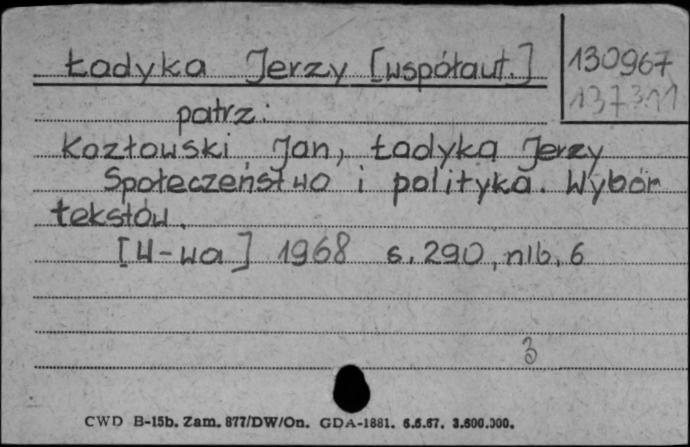 Ładyka Jerzy [współaut.] 130967
137311
patrz:
Kozłowski Jan, Ładyka Jerzy
Społeczeństwo i polityka. Wybór
tekstów.
[W-wa] 1968 s. 290, nlb. 6
3
CWD B-15b. Zam. 877/DW/On. GDA-1881. 6.6.67. 3.600.000.